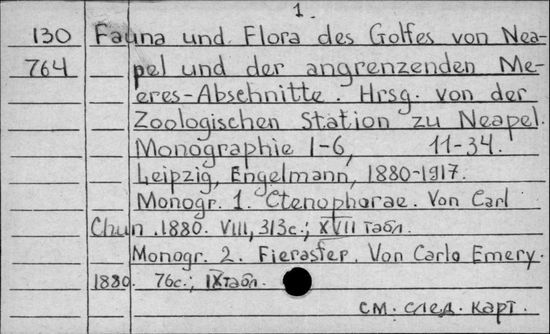 1.
130 Fauna und Flora des Golfes von Nea-
764 pel und der angrenzenden Me-
eres-Abschnitte. Hrsg. von der
Zoologischen Station zu Neapel.
Monographie 1-6, 11-34.
Leipzig, Engelmann, 1880-1917.
Monogr. 1. Ctenophorae. Von Carl
Chun. 1880. VIII, 313с.; XVII табл.
Monogr. 2. Fierasfer. Von Carlo Emery.
1880. 76с.; IX табл.
см. след. карт.